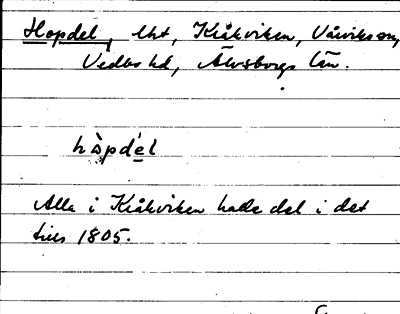 Hopdel, lht, Kråkviken, Vårviks sn,
Vedbo hd, Älvsborgs län.
håpdel
Alla i Kråkviken hade del i det
tills 1805.